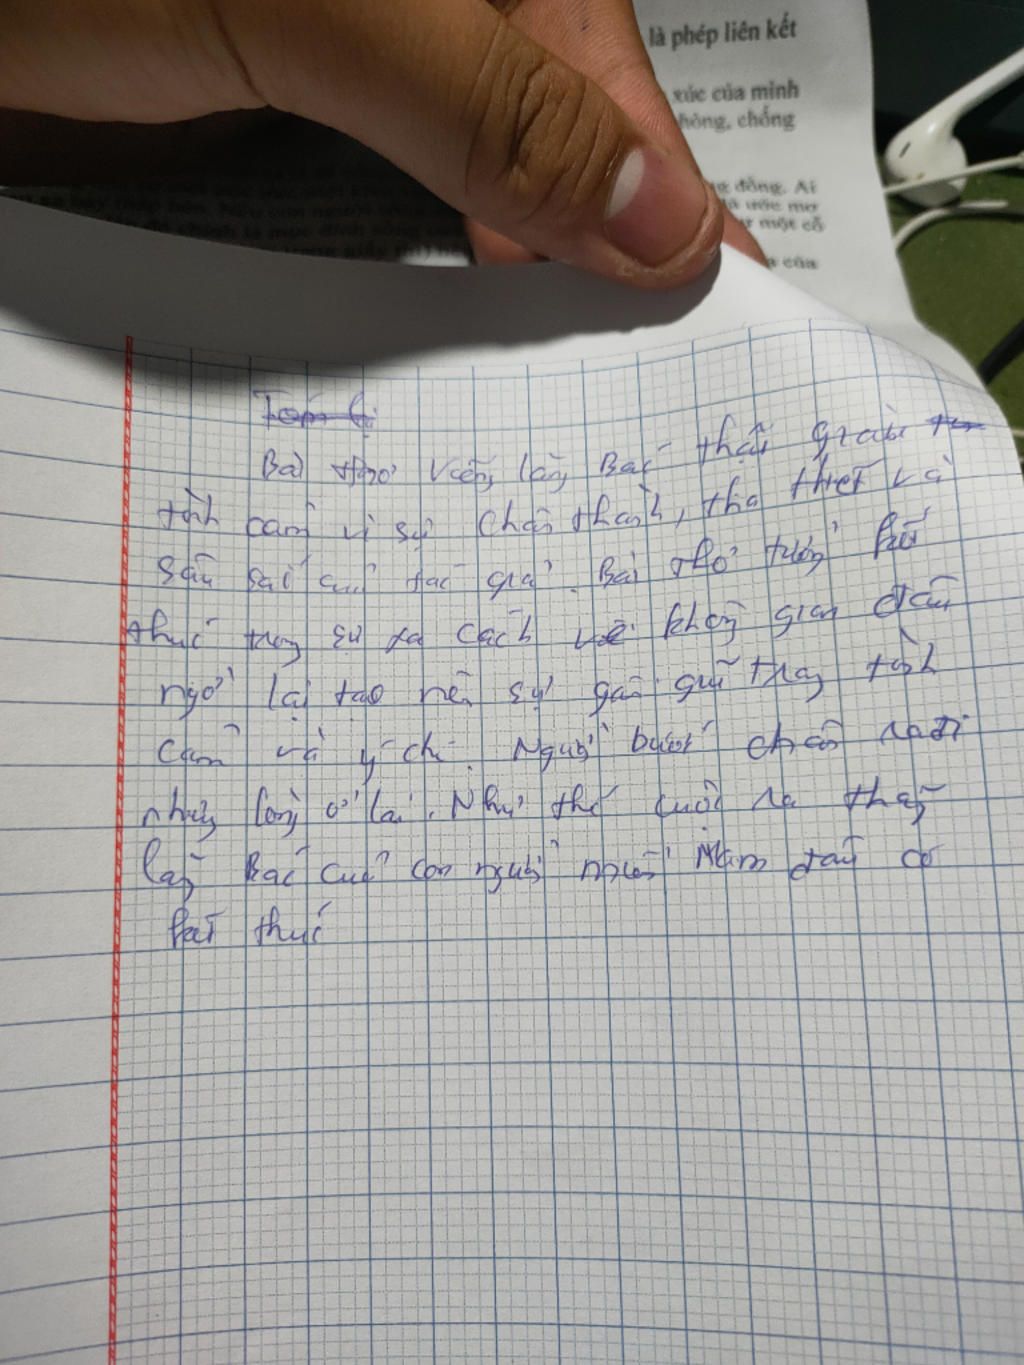 là phép liên kết
xúc của mình
phòng, chống
đồng. Ai
là ước mơ
một cỗ
của
Bài thơ Viếng lăng Bác thật giàu
tình cảm vì sự chân thành, tha thiết và
sâu sắc của tác giả. Bài thơ tưởng kết
thúc trong sự xa cách về không gian đâu
ngờ lại tạo nên sự gần gũi trong tình
cảm và ý chí. Người bước chân ra đi
nhưng lòng ở lại. Như thế cuộc ra thăm
lăng Bác của con người miền Nam đâu có
kết thúc